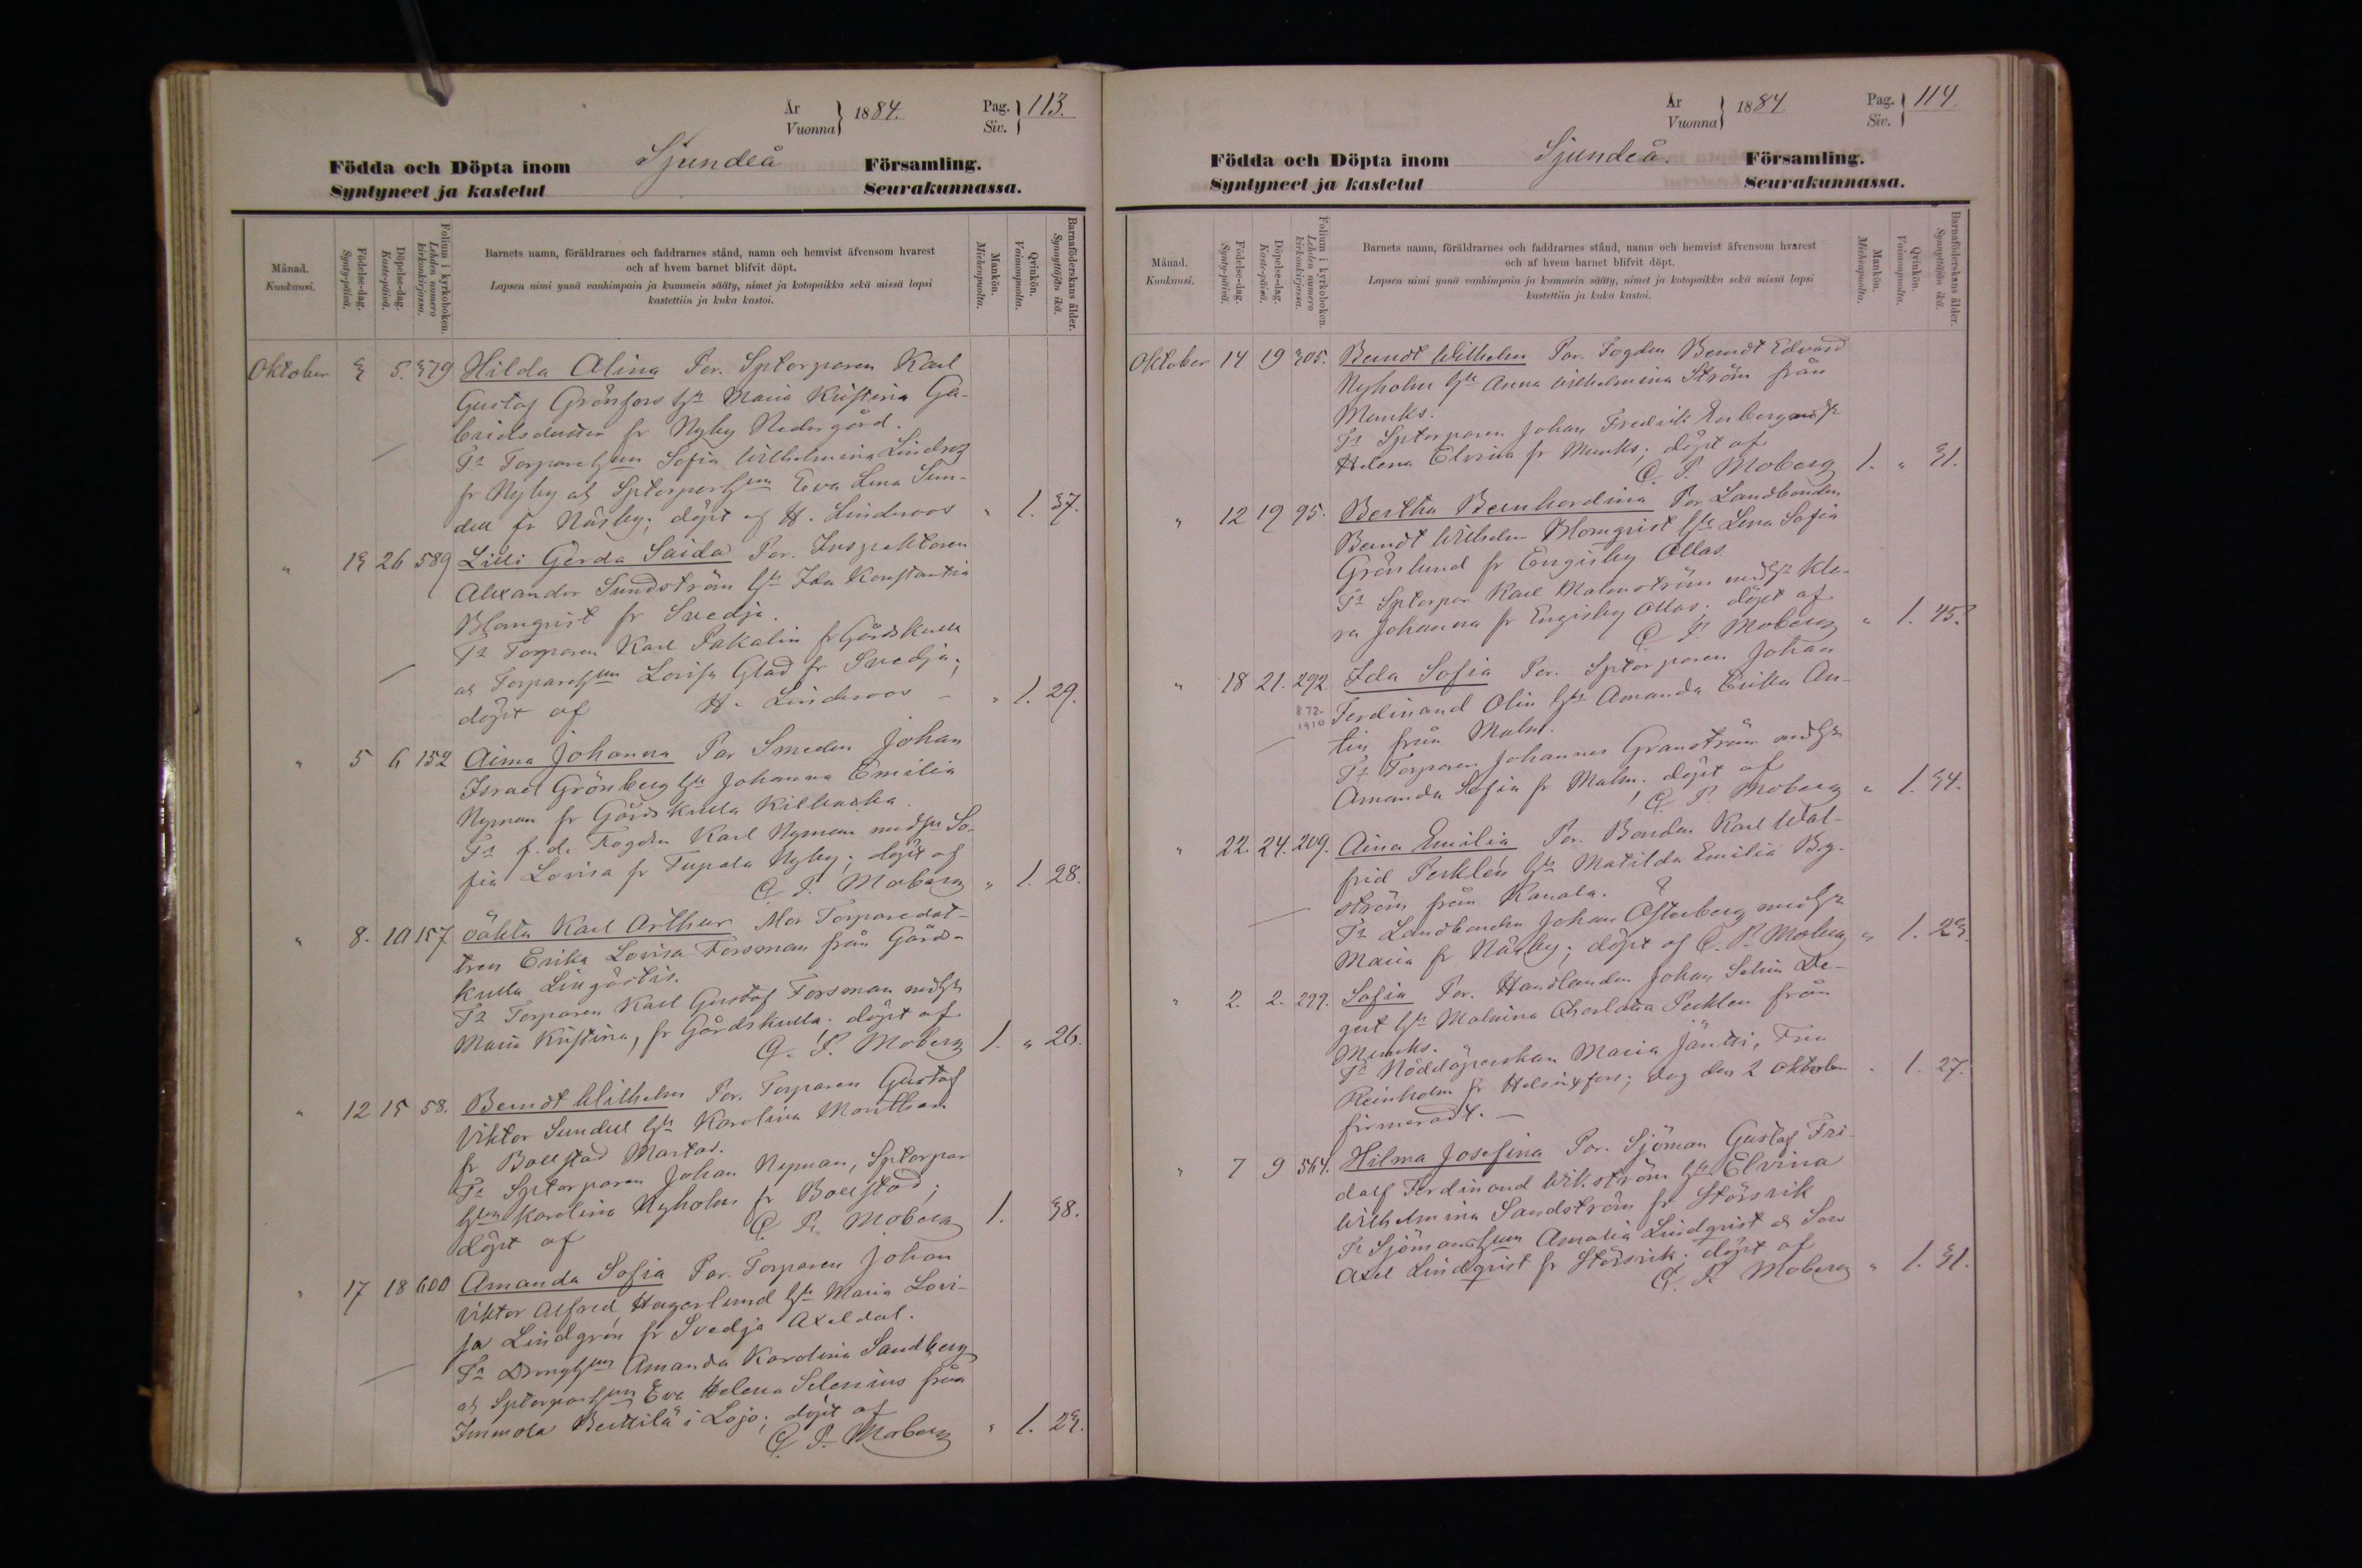 År
Vuonna
1884.
Pag.
Siv.
113.
Födda och Döpta inom Sjundeå Församling.
Syntyneet ja kastetut Seurakunnassa.
Månad.
Kuukausi.
Födelse-dag.
Synty-päivä.
Döpelse-dag.
Kaste-päivä.
Folium i kyrkoboken.
Lehden numero
kirkonkirjassa.
Barnets namn, föräldrarnes och faddrarnes stånd, namn och hemvist äfvensom hvarest
och af hvem barnet blifvit döpt.
Lapsen nimi ynnä vanhimpain ja kummein sääty, nimet ja kotopaikka sekä missä lapsi
kastettiin ja kuka kastoi.
Mankön.
Miehenpuolta.
Qvinkön.
Vaimonpuolta.
Barnaföderskans ålder.
Synnyttäjän ikä.
Oktober 3 5. 379 Hilda Alina För. Sptorparen Karl
Gustaf Grönfors Hu Maria Kristina Ga-
brielsdotter fr Nyby Nedergård.
Fr Torpare Hun Sofia Wilhelmina Lindroos
fr Nyby och Sptorpar Hun Eva Lena Sun-
dell fr Näsby; döpt af H. Linderoos " 1. 37.
" 13 26 589 Lilli Gerda Saida För. Inspektoren
Alexander Sundström Hu Ida Konstantia
Blomqvist fr Svedja.
Fr Torparen Karl Pakalin fr Gårdskulla
och Torpare Hun Lovisa Glad fr Svedja;
döpt af H. Linderoos " 1. 29.
" 5 6 152 Aina Johanna För Smeden Johan
Israel Grönberg Hu Johanna Emilia
Nyman fr Gårdskulla
Fr f.d. Fogden Karl Nyman med Hu So-
fia Lovisa fr Tupala Nyby; döpt af
C. P. Moberg " 1. 28.
" 8. 10 157 oäkta Karl Arthur Mor Torparedot-
tren Erika Lovisa Forsman från Gårds-
kulla
Fr Torparen Karl Gustaf Forsman med Hu
Maria Kristina, fr Gårdskulla. döpt af
C. P. Moberg 1. " 26.
" 12 15 58. Berndt Wilhelm För. Torparen Gustaf
Viktor Sundell Hu Karolina Monthan
fr Böllstad Martas.
Fr Sptorparen Johan Nyman, Sptorpar
Hun Karolina Nyholm fr Böllstad;
döpt af C. P. Moberg 1. 38.
" 17 18 600 Amanda Sofia För. Torparen Johan
Viktor Alfred Hagerlund Hu Maria Lovi-
sa Lindgrén fr Svedja Axeldal.
Fr Dreng Hun Amanda Karolina Sandberg
och Sptorpar Hun Eva Helena Selenius från
Immola Bertilä i Lojo; döpt af
C. P. Moberg " 1. 23.
År
Vuonna
1884.
Pag.
Siv.
114.
Födda och Döpta inom Sjundeå. Församling.
Syntyneet ja kastetut Seurakunnassa.
Månad.
Kuukausi.
Födelse-dag.
Synty-päivä.
Döpelse-dag.
Kaste-päivä.
Folium i kyrkoboken.
Lehden numero
kirkonkirjassa.
Barnets namn, föräldrarnes och faddrarnes stånd, namn och hemvist äfvensom hvarest
och af hvem barnet blifvit döpt.
Lapsen nimi ynnä vanhimpain ja kummein sääty, nimet ja kotopaikka sekä missä lapsi
kastettiin ja kuka kastoi.
Mankön.
Miehenpuolta.
Qvinkön.
Vaimonpuolta.
Barnaföderskans ålder.
Synnyttäjän ikä.
Oktober 14 19 305. Berndt Wilhelm För. Fogden Berndt Edvard
Nyholm Hu Anna Wilhelmina Ström från
Munks.
Fr Sptorparen Johan Fredrik Enberg med Hu
Helena Elvira fr Munks; döpt af
C. P. Moberg 1. " 31.
" 12 19 95. Bertha Bernhardina För Landbonden
Berndt Wilhelm Blomqvist Hu Lena Sofia
Grönlund fr Engisby Ollas.
Fr Sptorpar Karl Malmström med Hu Kla-
ra Johanna fr Engisby Ollas; döpt af
C. P. Moberg " 1. 45?
" 18 21. 292. Ida Sofia För. Sptorparen Johan
872-
1910
Ferdinand Olin Hu Amanda Erika An-
tin från Malm.
Fr Torparen Johannes Granström med Hu
Amanda Sofia fr Malm. döpt af
C. P. Moberg " 1. 34.
" 22. 24. 209. Aina Emilia För. Bonden Karl Wal-
frid Perklén Hu Matilda Emilia By-
ström från Kanala.
Fr Landbonden Johan Österberg med Hu
Maria fr Näsby; döpt af C. P. Moberg " 1. 23.
" 2. 2. 297. Sofia För. Handlanden Johan Selim De-
gert Hu Malvina Charlotta Perklen från
Munks.
Fr Nöddöperskan Maria Jäntti, Fru
Reinholm fr Helsingfors; dog den 2 oktober " 1. 27.
firmeradt. —
" 7 9 564. Hilma Josefina För. Sjöman Gustaf Fri-
dolf Ferdinand Wikström Hu Elvira
Wilhelmina Sandström fr Störsvik
Fr Sjömans Hun Amalia Lindqvist & Son
Axel Lindqvist fr Störsvik; döpt af
C. P. Moberg " 1. 31.